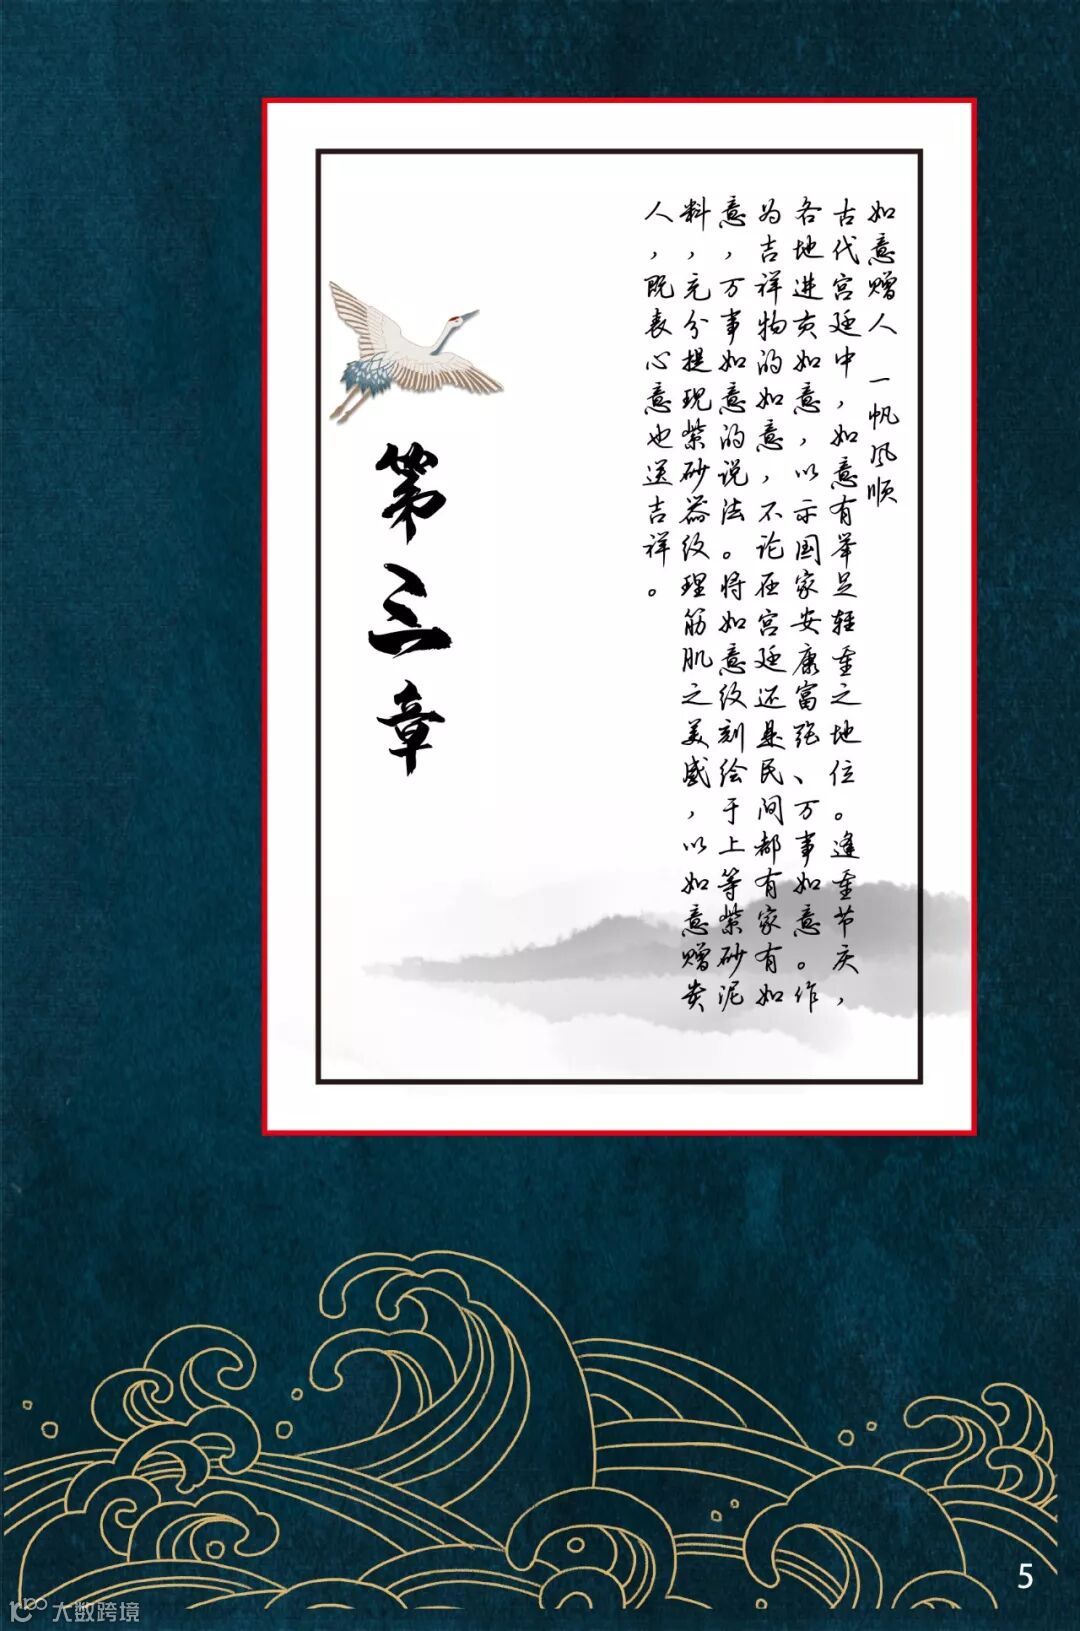 如意赠人 一帆风顺
古代宫廷中，如意有举足轻重之地位。逢重节庆，
各地进贡如意，以示国家安康富强、万事如意。作
为吉祥物的如意，不论在宫廷还是民间都有家有如
意，万事如意的说法。将如意纹刻绘于上等紫砂泥
料，充分提现紫砂器纹理筋肌之美感，以如意赠贵
人，既表心意也送吉祥。
第三章
5
大数跨境